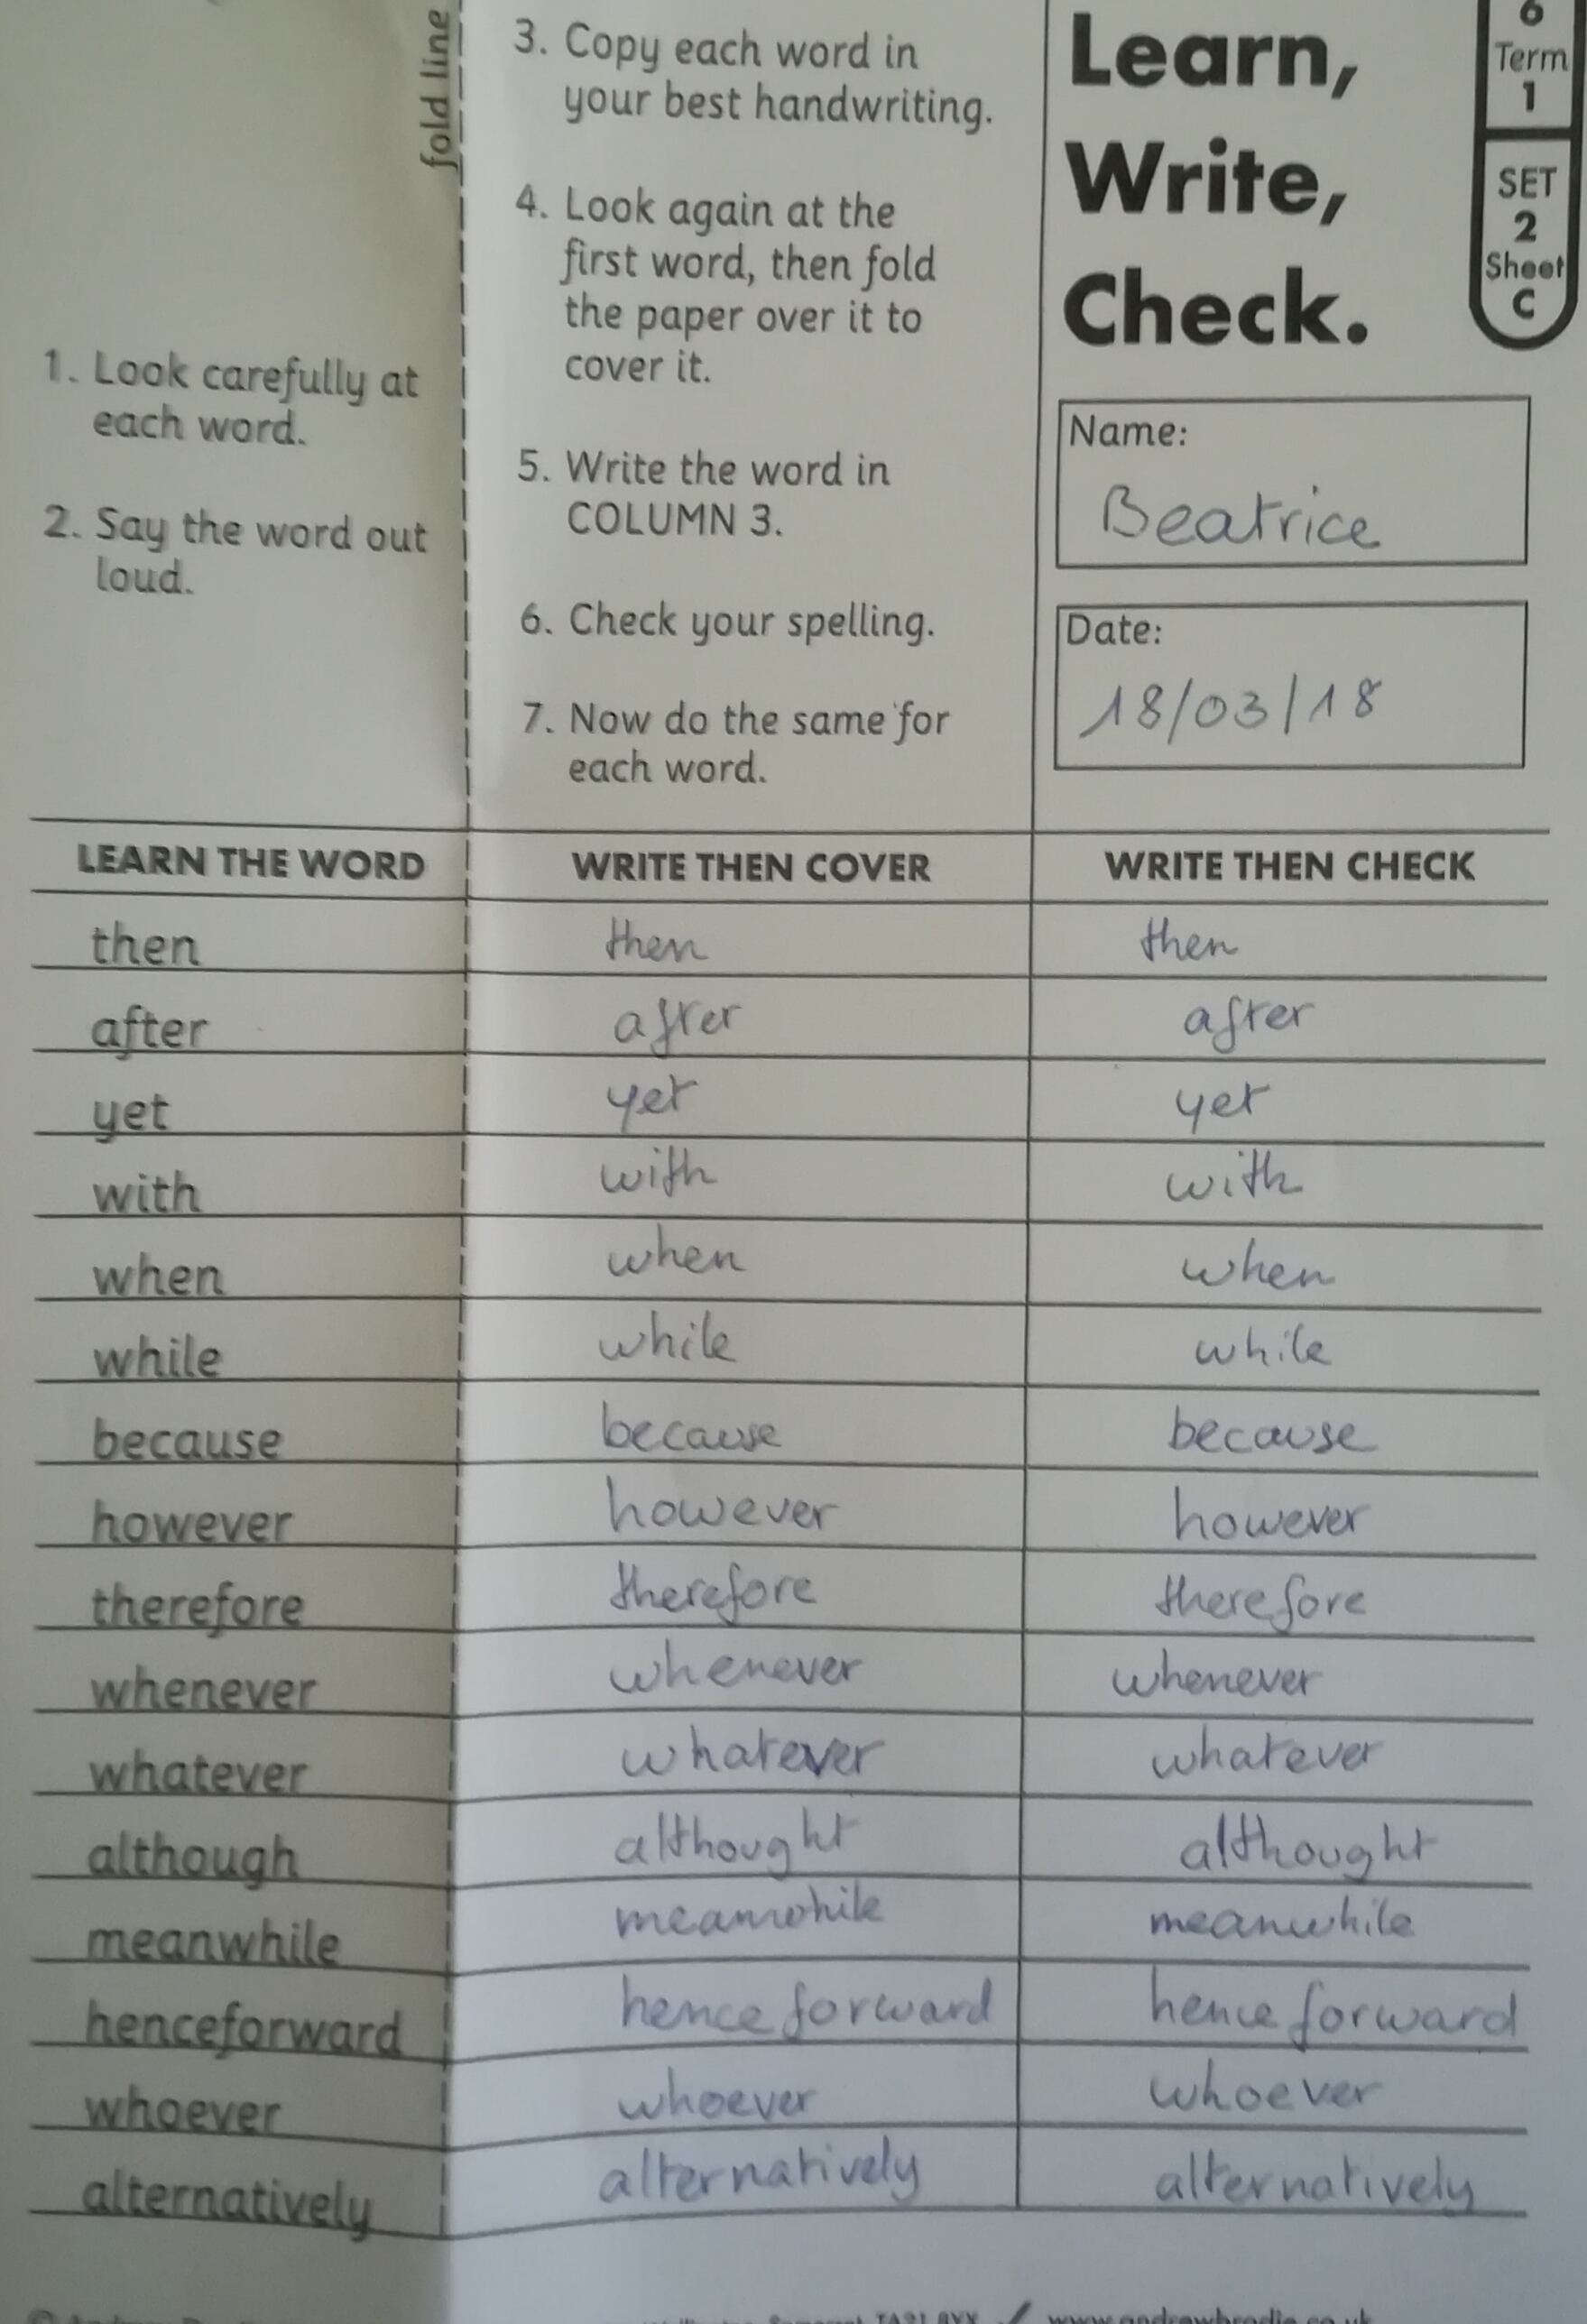 fold line
1. Look carefully at
each word.
2. Say the word out
loud.
3. Copy each word in
your best handwriting.
4. Look again at the
first word, then fold
the paper over it to
cover it.
5. Write the word in
COLUMN 3.
6. Check your spelling.
7. Now do the same for
each word.
Learn,
Write,
Check.
6
Term
1
SET
2
Sheet
C
Name:
Beatrice
Date:
18/03/18
LEARN THE WORD WRITE THEN COVER WRITE THEN CHECK
then then then
after after after
yet yet yet
with with with
when when when
while while while
because because because
however however however
therefore therefore therefore
whenever whenever whenever
whatever whatever whatever
although althought althought
meanwhile meanwhile meanwhile
henceforward henceforward henceforward
whoever whoever whoever
alternatively alternatively alternatively
TA21 8YX www.andrewbrodie.co.uk